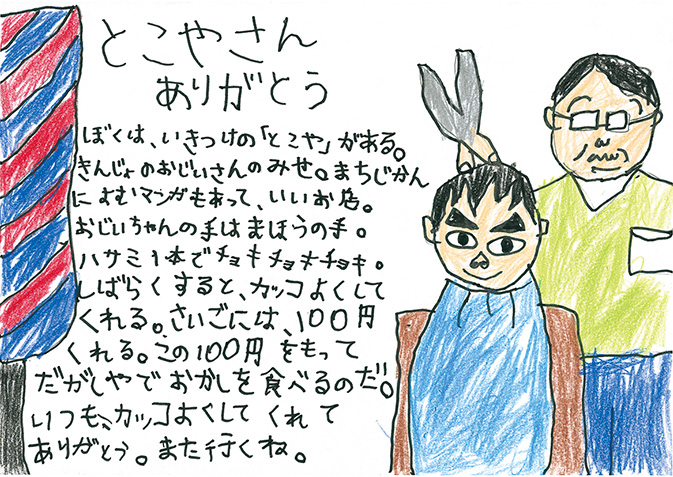 とこやさん
ありがとう
ぼくは、いきつけの「とこや」がある。
きんじょのおじいさんのみせ。まちじかん
によむマンガもあって、いいお店。
おじいちゃんの手はまほうの手。
ハサミ1本でチョキチョキチョキ。
しばらくすると、カッコよくして
くれる。さいごには、100円
くれる。この100円をもって
だがしやでおかしを食べるのだ。
いつも、カッコよくしてくれて
ありがとう。また行くね。